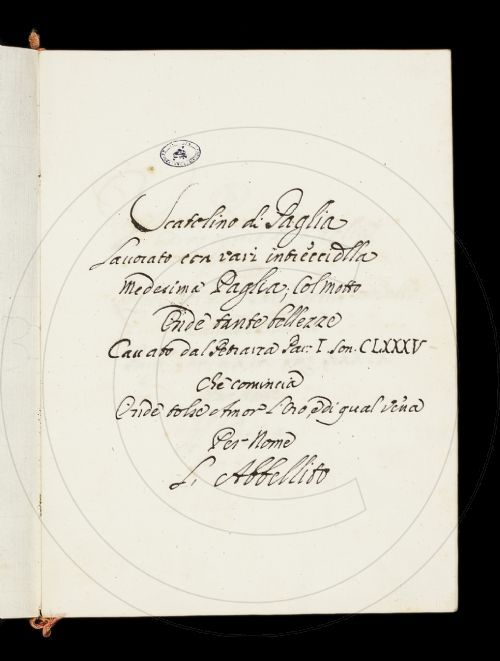 Scatolino di Paglia
Lavorato con vari intrecci della
Medesima Paglia; Col motto
Onde tante bellezze
Cavato dal Petrarca Par: I. Son. CLXXXV
che comincia
Onde tolse Amor l'Oro, e di qual vena
Per Nome
L' Abbellito